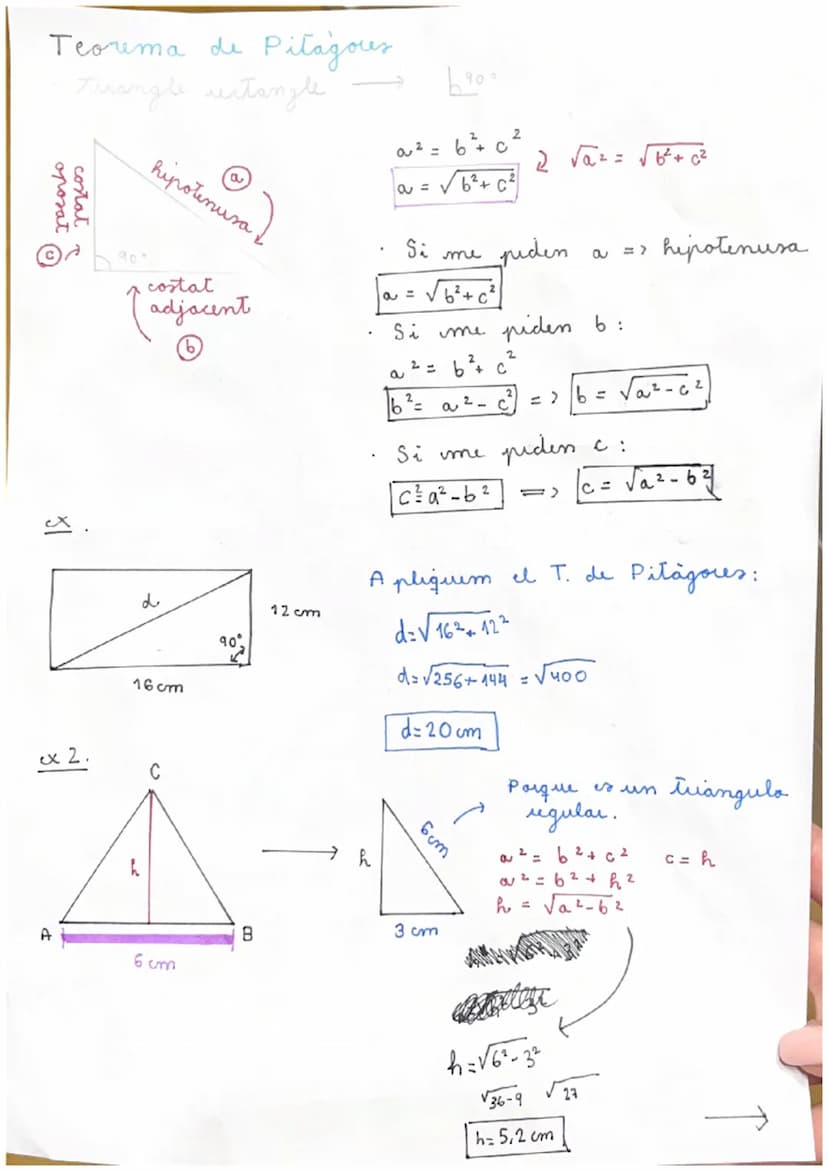 Teorema de Pitàgores
Triangle rectangle → 90°
a² = b² + c²
√a² = √b² + c²
a = √b² + c²
hipotenusa
a
costat
oposat
c
90°
costat
adjacent
b
· Si me piden a => hipotenusa
a = √b² + c²
· Si me piden b :
a² = b² + c²
b² = a² - c² => b = √a² - c²
· Si me piden c :
c² = a² - b² => c = √a² - b²
ex .
d
12 cm
90°
16 cm
Apliquem el T. de Pitàgores:
d=√16² + 12²
d=√256+144 = √400
d=20 cm
ex 2.
C
h
A
B
6 cm
→
h
6cm
3 cm
Porque es un triángulo
regular.
a² = b² + c² c = h
a² = b² + h²
h = √a² - b²
h=√6² - 3²
√36-9 √27
h=5,2 cm
→